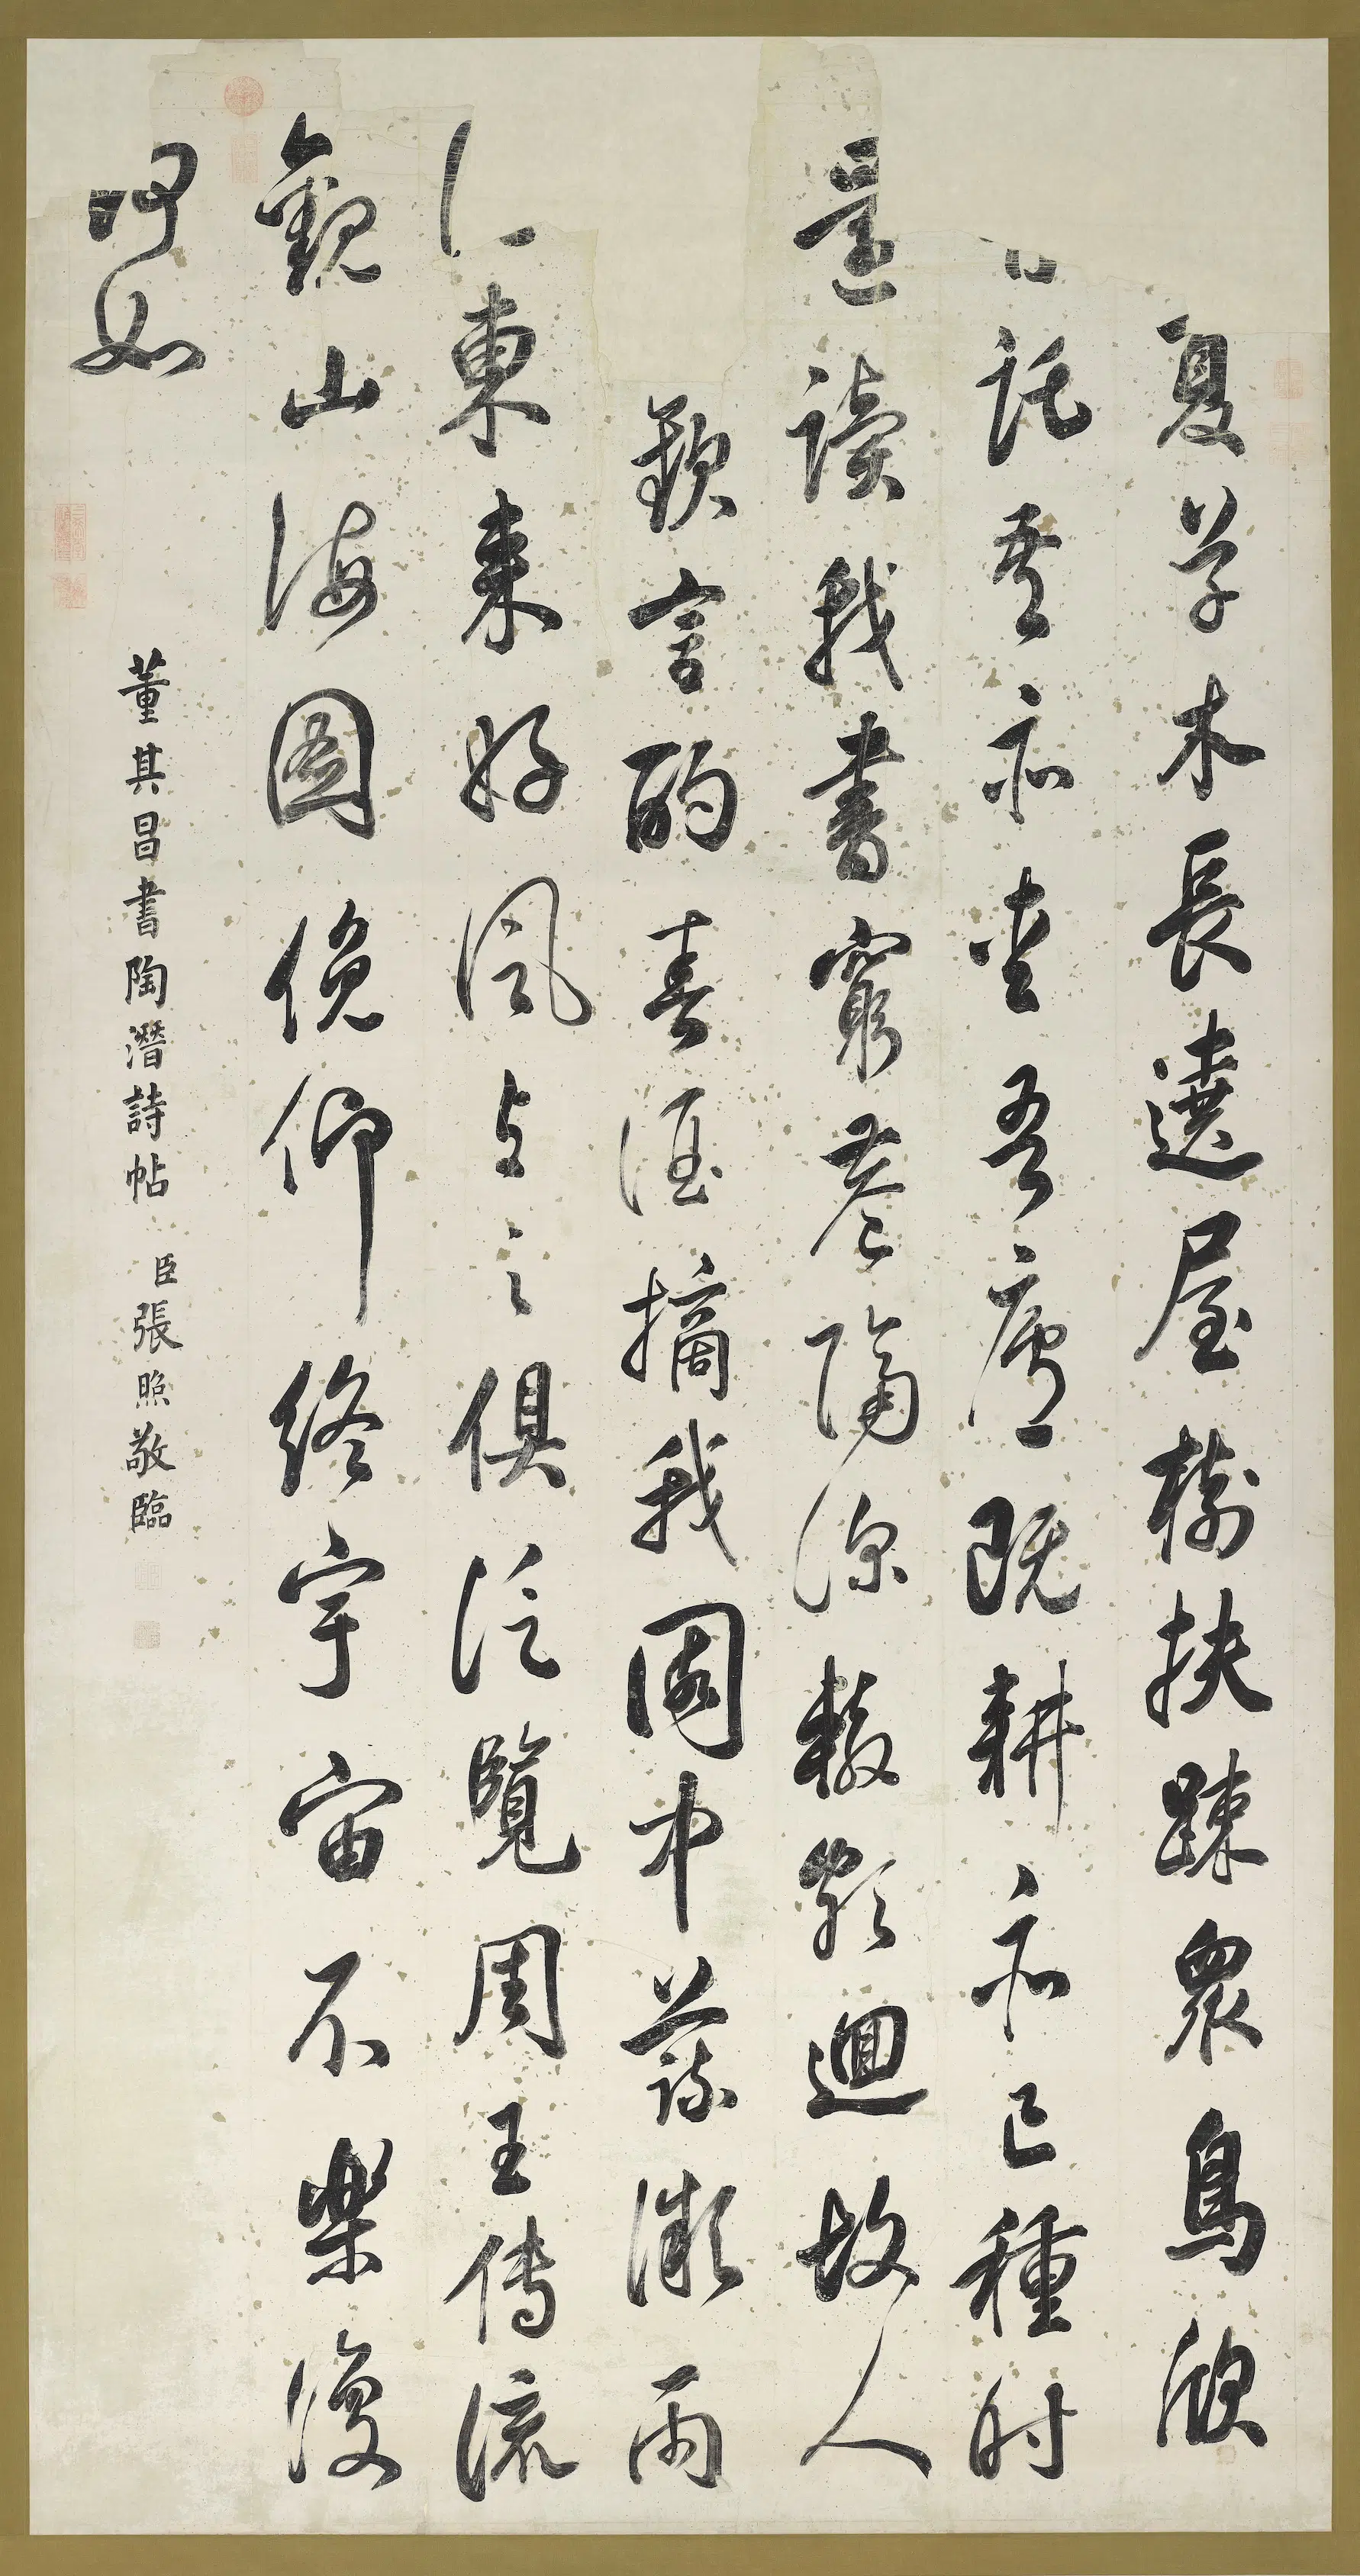 夏草木長遶屋樹扶踈衆鳥欣
託吾亦愛吾廬既耕亦已種時
還讀我書窮巷隔深轍頗迴故人
歡言酌春酒摘我園中蔬微雨
東來好風与之俱泛覽周王傳流
觀山海圖俛仰終宇宙不樂復
何如
董其昌書陶潛詩帖 臣張照敬臨